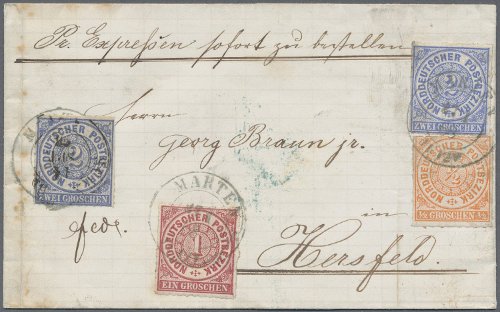 Pr. Expreſsen sofort zu bestellen
Herrn
Georg Braun jr.
in
Hersfeld.
NORDDEUTSCHER POSTBEZIRK
2
ZWEI GROSCHEN
NORDDEUTSCHER POSTBEZIRK
1/2
1/2 GROSCHEN 1/2
NORDDEUTSCHER POSTBEZIRK
2
ZWEI GROSCHEN
MARTE
NORDDEUTSCHER POSTBEZIRK
1
EIN GROSCHEN